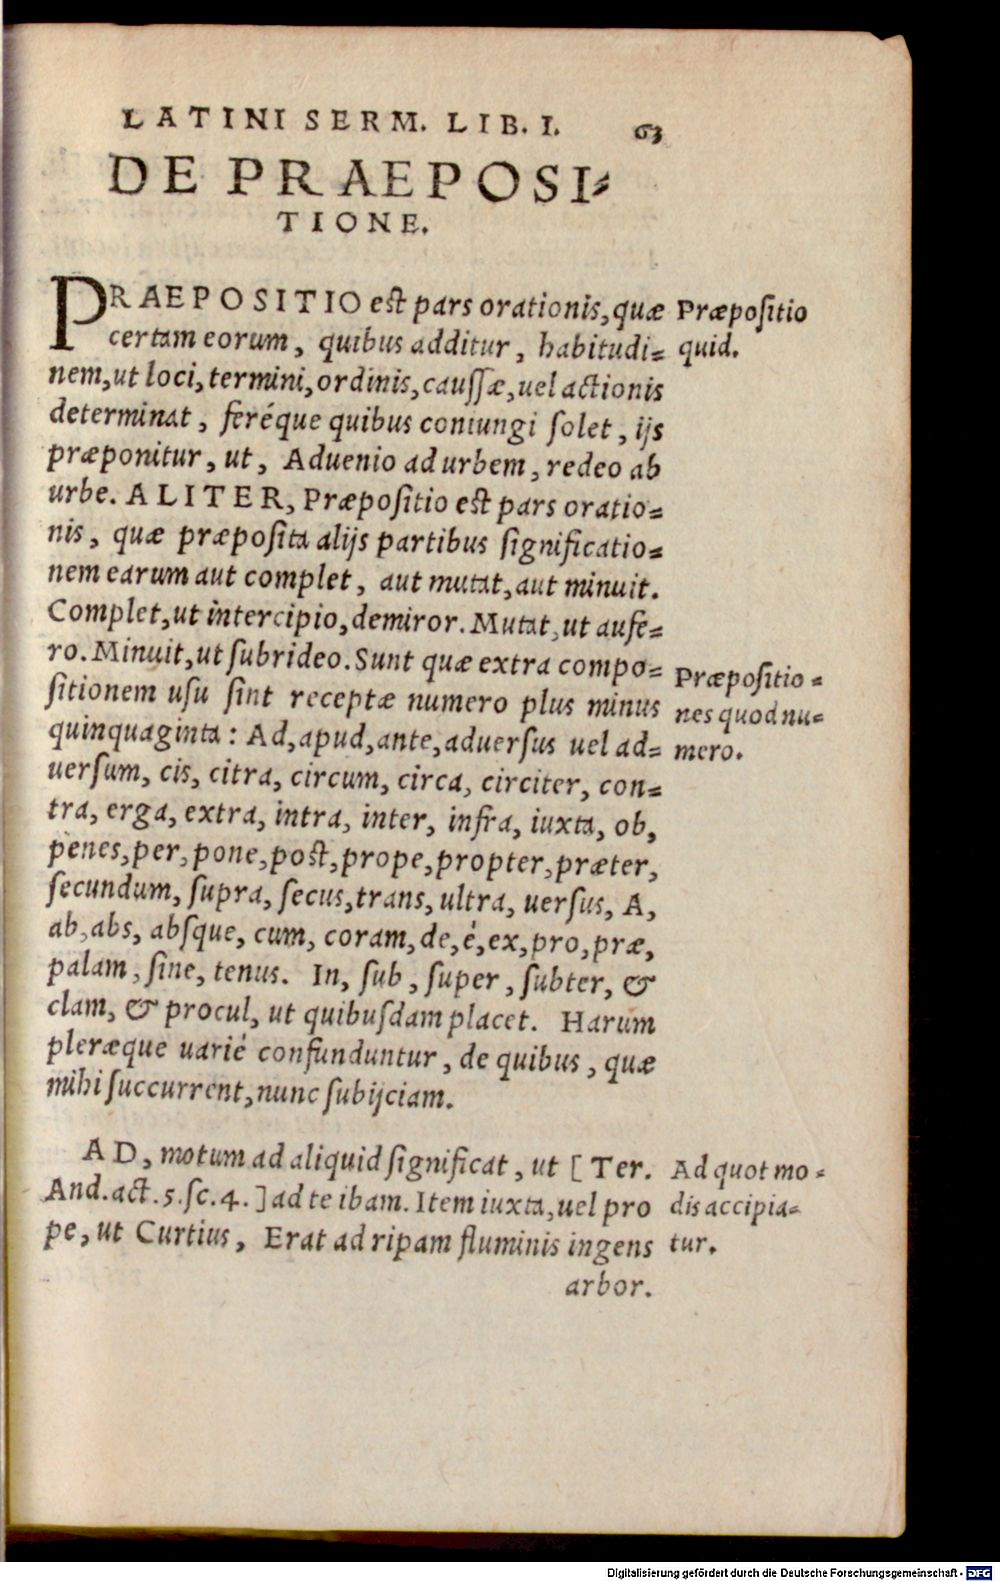 LATINI SERM. LIB. I. 63
DE PRAEPOSI-
TIONE.
PRAEPOSITIO est pars orationis, quæ
certam eorum, quibus additur, habitudi-
nem, ut loci, termini, ordinis, cauſſæ, uel actionis
determinat, feréque quibus coniungi ſolet, ijs
præponitur, ut, Aduenio ad urbem, redeo ab
urbe. ALITER, Præpoſitio est pars oratio-
nis, quæ præpoſita alijs partibus ſignificatio-
nem earum aut complet, aut mutat, aut minuit.
Complet, ut intercipio, demiror. Mutat, ut aufe-
ro. Minuit, ut ſubrideo. Sunt quæ extra compo-
ſitionem uſu ſint receptæ numero plus minus
quinquaginta: Ad, apud, ante, aduerſus uel ad-
uerſum, cis, citra, circum, circa, circiter, con-
tra, erga, extra, intra, inter, infra, iuxta, ob,
penes, per, pone, post, prope, propter, præter,
ſecundum, ſupra, ſecus, trans, ultra, uerſus, A,
ab, abs, abſque, cum, coram, de, é, ex, pro, præ,
palam, ſine, tenus. In, ſub, ſuper, ſubter, &
clam, & procul, ut quibuſdam placet. Harum
pleræque uarié confunduntur, de quibus, quæ
mihi ſuccurrent, nunc ſubijciam.
AD, motum ad aliquid ſignificat, ut [Ter.
And. act. 5. ſc. 4.] ad te ibam. Item iuxta, uel pro
pe, ut Curtius, Erat ad ripam fluminis ingens
arbor.
Præpoſitio
quid.
Præpoſitio-
nes quod nu-
mero.
Ad quot mo-
dis accipia-
tur.
Digitalisierung gefördert durch die Deutsche Forschungsgemeinschaft - DFG